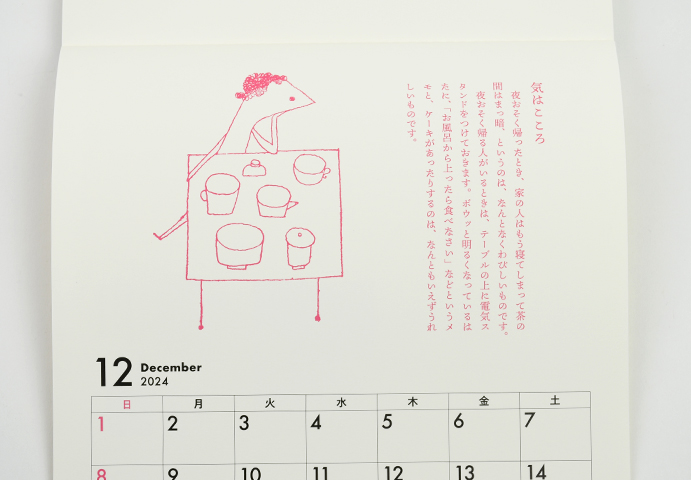 気はこころ
夜おそく帰ったとき、家の人はもう寝てしまって茶の
間はまっ暗、というのは、なんとなくわびしいものです。
夜おそく帰る人がいるときは、テーブルの上に電気ス
タンドをつけておきます。ボウッと明るくなっているは
たに、「お風呂から上ったら食べなさい」などというメ
モと、ケーキがあったりするのは、なんともいえずうれ
しいものです。
12 December
2024
日 月 火 水 木 金 土
1 2 3 4 5 6 7
8 9 10 11 12 13 14